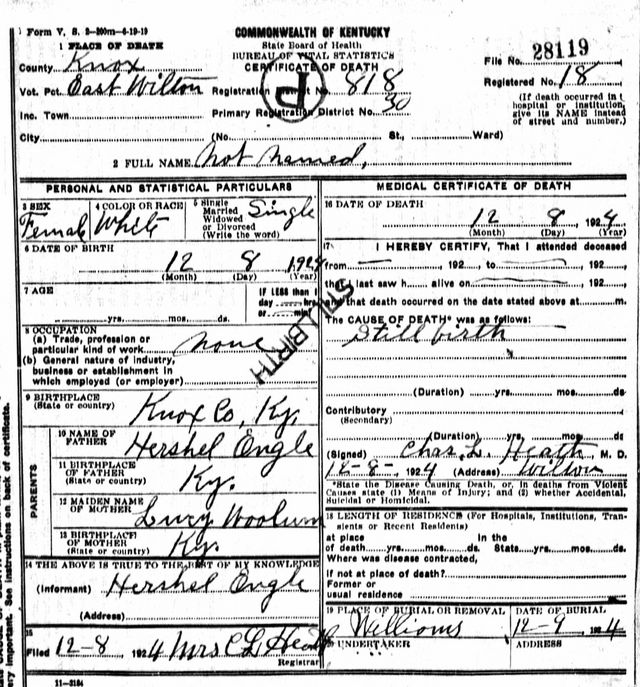 Form V. S. 2-200m-6-19-19
COMMONWEALTH OF KENTUCKY
State Board of Health
BUREAU OF VITAL STATISTICS
CERTIFICATE OF DEATH
1 PLACE OF DEATH
County Knox
Vot. Pct. East Wilton
Inc. Town
City
File No. 28119
Registered No. 18
(If death occurred in
hospital or institution,
give its NAME instead
of street and number.)
Registration District No. 818
Primary Registration District No. 30
(No. St., Ward)
2 FULL NAME not named,
PERSONAL AND STATISTICAL PARTICULARS
3 SEX Female
4 COLOR OR RACE White
5 Single
Married
Widowed
or Divorced
(Write the word) Single
6 DATE OF BIRTH
12 8 1924
(Month) (Day) (Year)
7 AGE
yrs. mos. ds.
IF LESS than 1
day hrs
or min?
STILLBIRTH
8 OCCUPATION
(a) Trade, profession or
particular kind of work none
(b) General nature of industry,
business or establishment in
which employed (or employer)
9 BIRTHPLACE
(State or country) Knox Co, Ky.
PARENTS
10 NAME OF
FATHER Hershel Engle
11 BIRTHPLACE
OF FATHER
(State or country) Ky.
12 MAIDEN NAME
OF MOTHER Lucy Woolum
13 BIRTHPLACE
OF MOTHER
(State or country) Ky.
14 THE ABOVE IS TRUE TO THE BEST OF MY KNOWLEDGE
(Informant) Hershel Engle
(Address)
15
Filed 12-8, 1924 Mrs C L Heath
Registrar
11-3184
MEDICAL CERTIFICATE OF DEATH
16 DATE OF DEATH
12 8 1924
(Month) (Day) (Year)
17 I HEREBY CERTIFY, That I attended deceased
from 192 to 192
that I last saw h alive on 192
and that death occurred on the date stated above at m.
The CAUSE OF DEATH* was as follows:
Still birth
(Duration) yrs. mos. ds
Contributory
(Secondary)
(Duration) yrs. mos. ds
(Signed) Chas. L. Heath, M. D.
12-8-, 1924 (Address) Wilton
*State the Disease Causing Death, or, in deaths from Violent
Causes state (1) Means of Injury; and (2) whether Accidental,
Suicidal or Homicidal.
18 LENGTH OF RESIDENCE (For Hospitals, Institutions, Tran-
sients or Recent Residents)
at place In the
of death yrs. mos. ds. State yrs. mos. ds.
Where was disease contracted,
If not at place of death?
Former or
usual residence
19 PLACE OF BURIAL OR REMOVAL
Williams
DATE OF BURIAL
12-9 1924
20 UNDERTAKER
ADDRESS
ry important. See instructions on back of certificate.